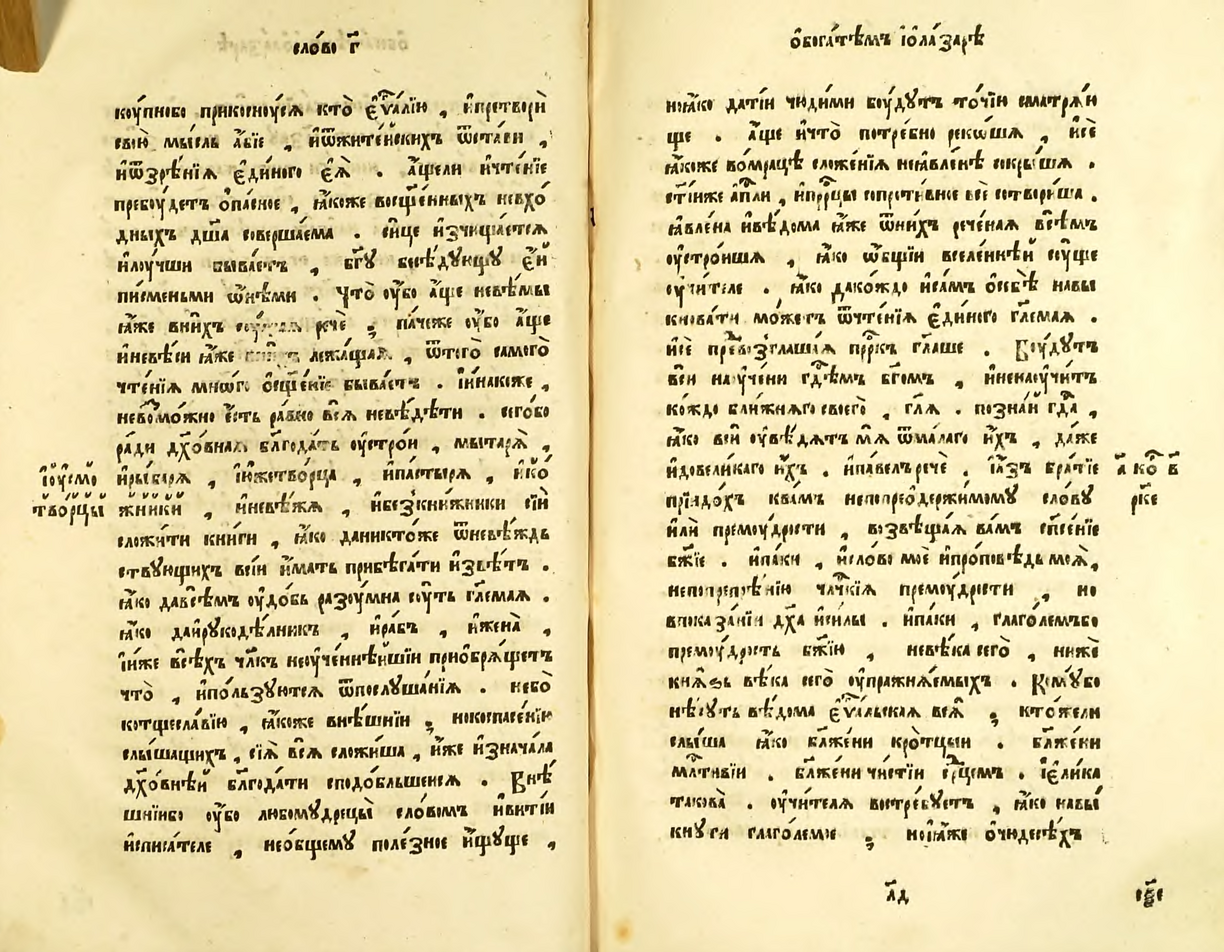 сло́во г҃
коу́пнобо прикоснꙋ́сѧ кто̀ є҆ѵⷢ҇а́лїю , и҆претворѝ
свою̀ мы́сль а҆́бїе , и҆ѿжите́искихъ ѿста́ви ,
и҆ѿзрѣ́нїѧ є҆ди́ного є҆ѧ̀ . а҆́щели и҆чте́нїе
пребоу́детъ ѻ҆па́сное , ꙗ҆́коже восщ҃е́нныхъ невхо́
дныхъ дш҃а̀ соверша́ема . си́це и҆зчища́етсѧ
и҆лоу́чши быва́етъ , бг҃ꙋ бесѣ́дꙋющꙋ є҆́й
писменьми ѻ҆нѣ́ми . Что̀ оу҆́бо а҆́ще невѣ́мы
ꙗ҆́же вни́хъ речѐ ; па́чеже оу҆́бо а҆́ще
и҆невѣ́си ꙗ҆́же лежа́щаѧ , ѿтого̀ самого̀
чте́нїѧ мно́го ѻ҆сщ҃е́нїе быва́етъ . и҆и҆на́коже ,
невозмо́жно є҆́сть ра́вно всѧ̀ невѣ́дѣти . сего́бо
ра́ди дх҃о́внаѧ бл҃года́ть оу҆стро́и , мытарѧ̀ ,
и҆рыбарѧ̀ , и҆и҆́жетво́рца , и҆па́стырѧ , и҆ко́
і҆ѻу҆смо́
творцы̀
жникѝ , и҆неве́жѧ , и҆безкни́жники сїѝ
сложи́ти кни́ги , ꙗ҆́ко даникто́же ѿневѣ́ждь
ствꙋющихъ всѝи и҆́мать прибѣга́ти и҆звѣ́тъ .
ꙗ҆́ко давсѣ́мъ оу҆до́бь разоу́мна соу́ть гл҃емаѧ .
ꙗ҆́ко дай́рꙋкодѣ́лникъ , и҆ра́бъ , и҆жена̀ ,
и҆и҆́же всѣ́хъ чл҃къ неоуче́ннѣйшїи приѻ҆брѧ́щетъ
что̀ , и҆по́льзꙋютсѧ ѿпослꙋ́шанїѧ . небо̀
котщесла́вїю , ꙗ҆́коже внѣ́шнїи ; нокоспасе́нїю
слы́шащихъ , сїѧ̀ всѧ̀ сложи́ша , и҆́же и҆знача́ла
дх҃о́внѣй бл҃года́ти сподо́бльшеисѧ . Внѣ́
шнїибо оу҆́бо любомꙋдрецы̀ сло́вомъ и҆вити́и
и҆списа́теле , нео́бщемꙋ поле́зное и҆́щꙋще ,
ѻ҆бога́тѣмъ і҆ѻла́зарѣ
ноꙗ҆́ко дати́и чю́дими боу́дꙋтъ то́чїю сматрѧ́и
ще . а҆́ще и҆что̀ потре́бно реко́шѧ , и҆сѐ
ꙗ҆́коже во́мрацѣ сложе́нїѧ неꙗ҆вле́нѣ сокры́шѧ .
ст҃і́иже а҆пⷭ҇ли , и҆прⷪ҇рцы сопроти́вное всѐ сотвори́ша .
ꙗ҆вле́на и҆вѣ́дома ꙗ҆́же ѿни́хъ рече́наѧ всѣ́мъ
оу҆стро́ишѧ , ꙗ҆́ко ѻ҆́бщїи вселе́ннѣй соу́ще
оу҆чи́теле . ꙗ҆́ко дако́ждо и҆са́мъ ѻ҆себѣ̀ навы
кнова́ти мо́жетъ ѿчте́нїѧ є҆ди́ного гл҃емаѧ .
и҆сѐ превозглаша́ѧ прⷪ҇ркъ гл҃аше . Боу́дꙋтъ
вси̂ наоу́чени гдⷭ҇ѣмъ бг҃омъ , и҆ненаоу́читъ
ко́ждо бли́жнѧго своего̀ , гл҃ѧ . позна́й гдⷭ҇а ,
ꙗ҆́ко всѝ оу҆вѣ́дѧтъ мѧ̀ ѿма́лаго и҆́хъ , да́же
и҆довели́каго и҆́хъ . и҆па́велъ речѐ . і҆а҆́зъ бра́тїе
а҃ ко в҃
рк҃е
прїидо́хъ ква́мъ непопреѻдержи́момꙋ сло́вꙋ
и҆лѝ премоу́дрости , возвѣща́ѧ ва́мъ спⷭ҇е́нїе
бж҃їе . и҆па́ки , и҆сло́во моѐ и҆про́повѣдь моѧ̀ ,
непопрепрѣ́нїю чл҃чкїѧ премоу́дрости , но
впоказа́нїи дх҃а и҆си́лы . и҆па́ки , глаго́лемъбо
премоу́дрость бж҃їю , невѣ́ка сего̀ , нижѐ
кнѧ́зь вѣ́ка сего̀ оу҆пражнѧ́емыхъ . Комꙋ́бо
нѣ́сꙋть вѣ́дома є҆ѵⷢ҇а́льскаѧ всѧ̑ ; кто́жели
слы́ша ꙗ҆́ко бл҃же́ни кро́тцыи . бл҃же́ни
млⷭ҇тивїи . бл҃же́ни чи́стїи срⷣ҇цемъ . і҆є҆ли́ка
такова̀ . оу҆чи́телѧ востре́бꙋетъ , ꙗ҆́ко навы́
кнꙋти глаго́лемое ; ноі҆ꙗ҆́же ѻ҆чюдесѣ́хъ
л҃д